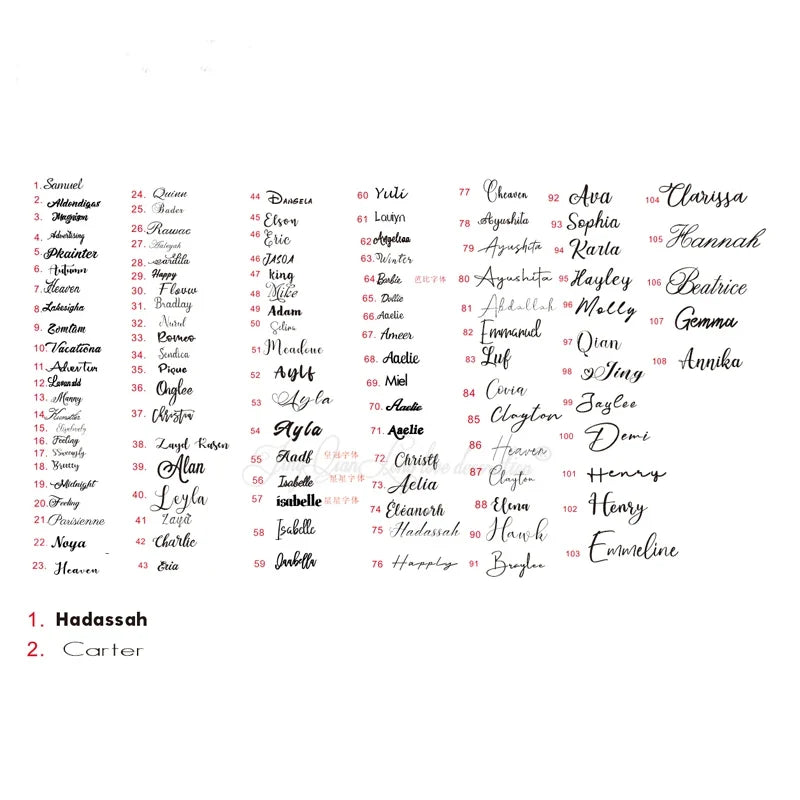 1. Samuel
2. Aldondigas
3. Magnism
4. Advertising
5. Pkainter
6. Autumn
7. Heaven
8. Lakesigha
9. Zomtam
10. Vacationa
11. Advertur
12.
13. Manny
14.
15.
16. Feeling
17.
18. Breezy
19. Midnight
20. Feeling
21 Parisienne
22. Noya
23. Heaven
24. Quinn
25. Bader
26. Rawac
27.
28.
29. Happy
30. Floww
31. Bradlay
32. Nurul
33. Romeo
34. Sendica
35. Pique
36. Onglee
37. Christia
38. Zayd Kasen
39. Alan
40. Leyla
41 Zaya
42 Charlie
43 Eria
44 Dangela
45 Elson
46 Eric
46 JASOA
47 king
48 Mike
49 Adam
50 Selina
51 Meadoue
52 Aylf
53 Ayla
54 Ayla
55 Aadf 皇冠字体
56 Isabelle 星星字体
57 isabelle 星星字体
58 Isabelle
59
60 Yuli
61 Louiyn
62 Angeliaa
63. Winter
64 Barbie 芭比字体
65. Dollie
66. Aaelie
67. Ameer
68. Aaelie
69. Miel
70. Aaelie
71. Aaelie
72. Christf
73. Aelia
74 Éléanorh
75 Hadassah
76 Happly
77 Cheaven
78 Ayushita
79 Ayushita
80 Ayushita
81 Abdallah
82 Emmanud
83 Luf
84 Covia
85 Clayton
86 Heaven
87 Clayton
88 Elena
90 Hawk
91 Braylee
92 Ava
93 Sophia
94 Karla
95 Hayley
96 Molly
97 Qian
98 Jing
99 Jaylee
100 Demi
101 Henry
102 Henry
103 Emmeline
104 Clarissa
105 Hannah
106 Beatrice
107 Gemma
108 Annika
1. Hadassah
2. Carter